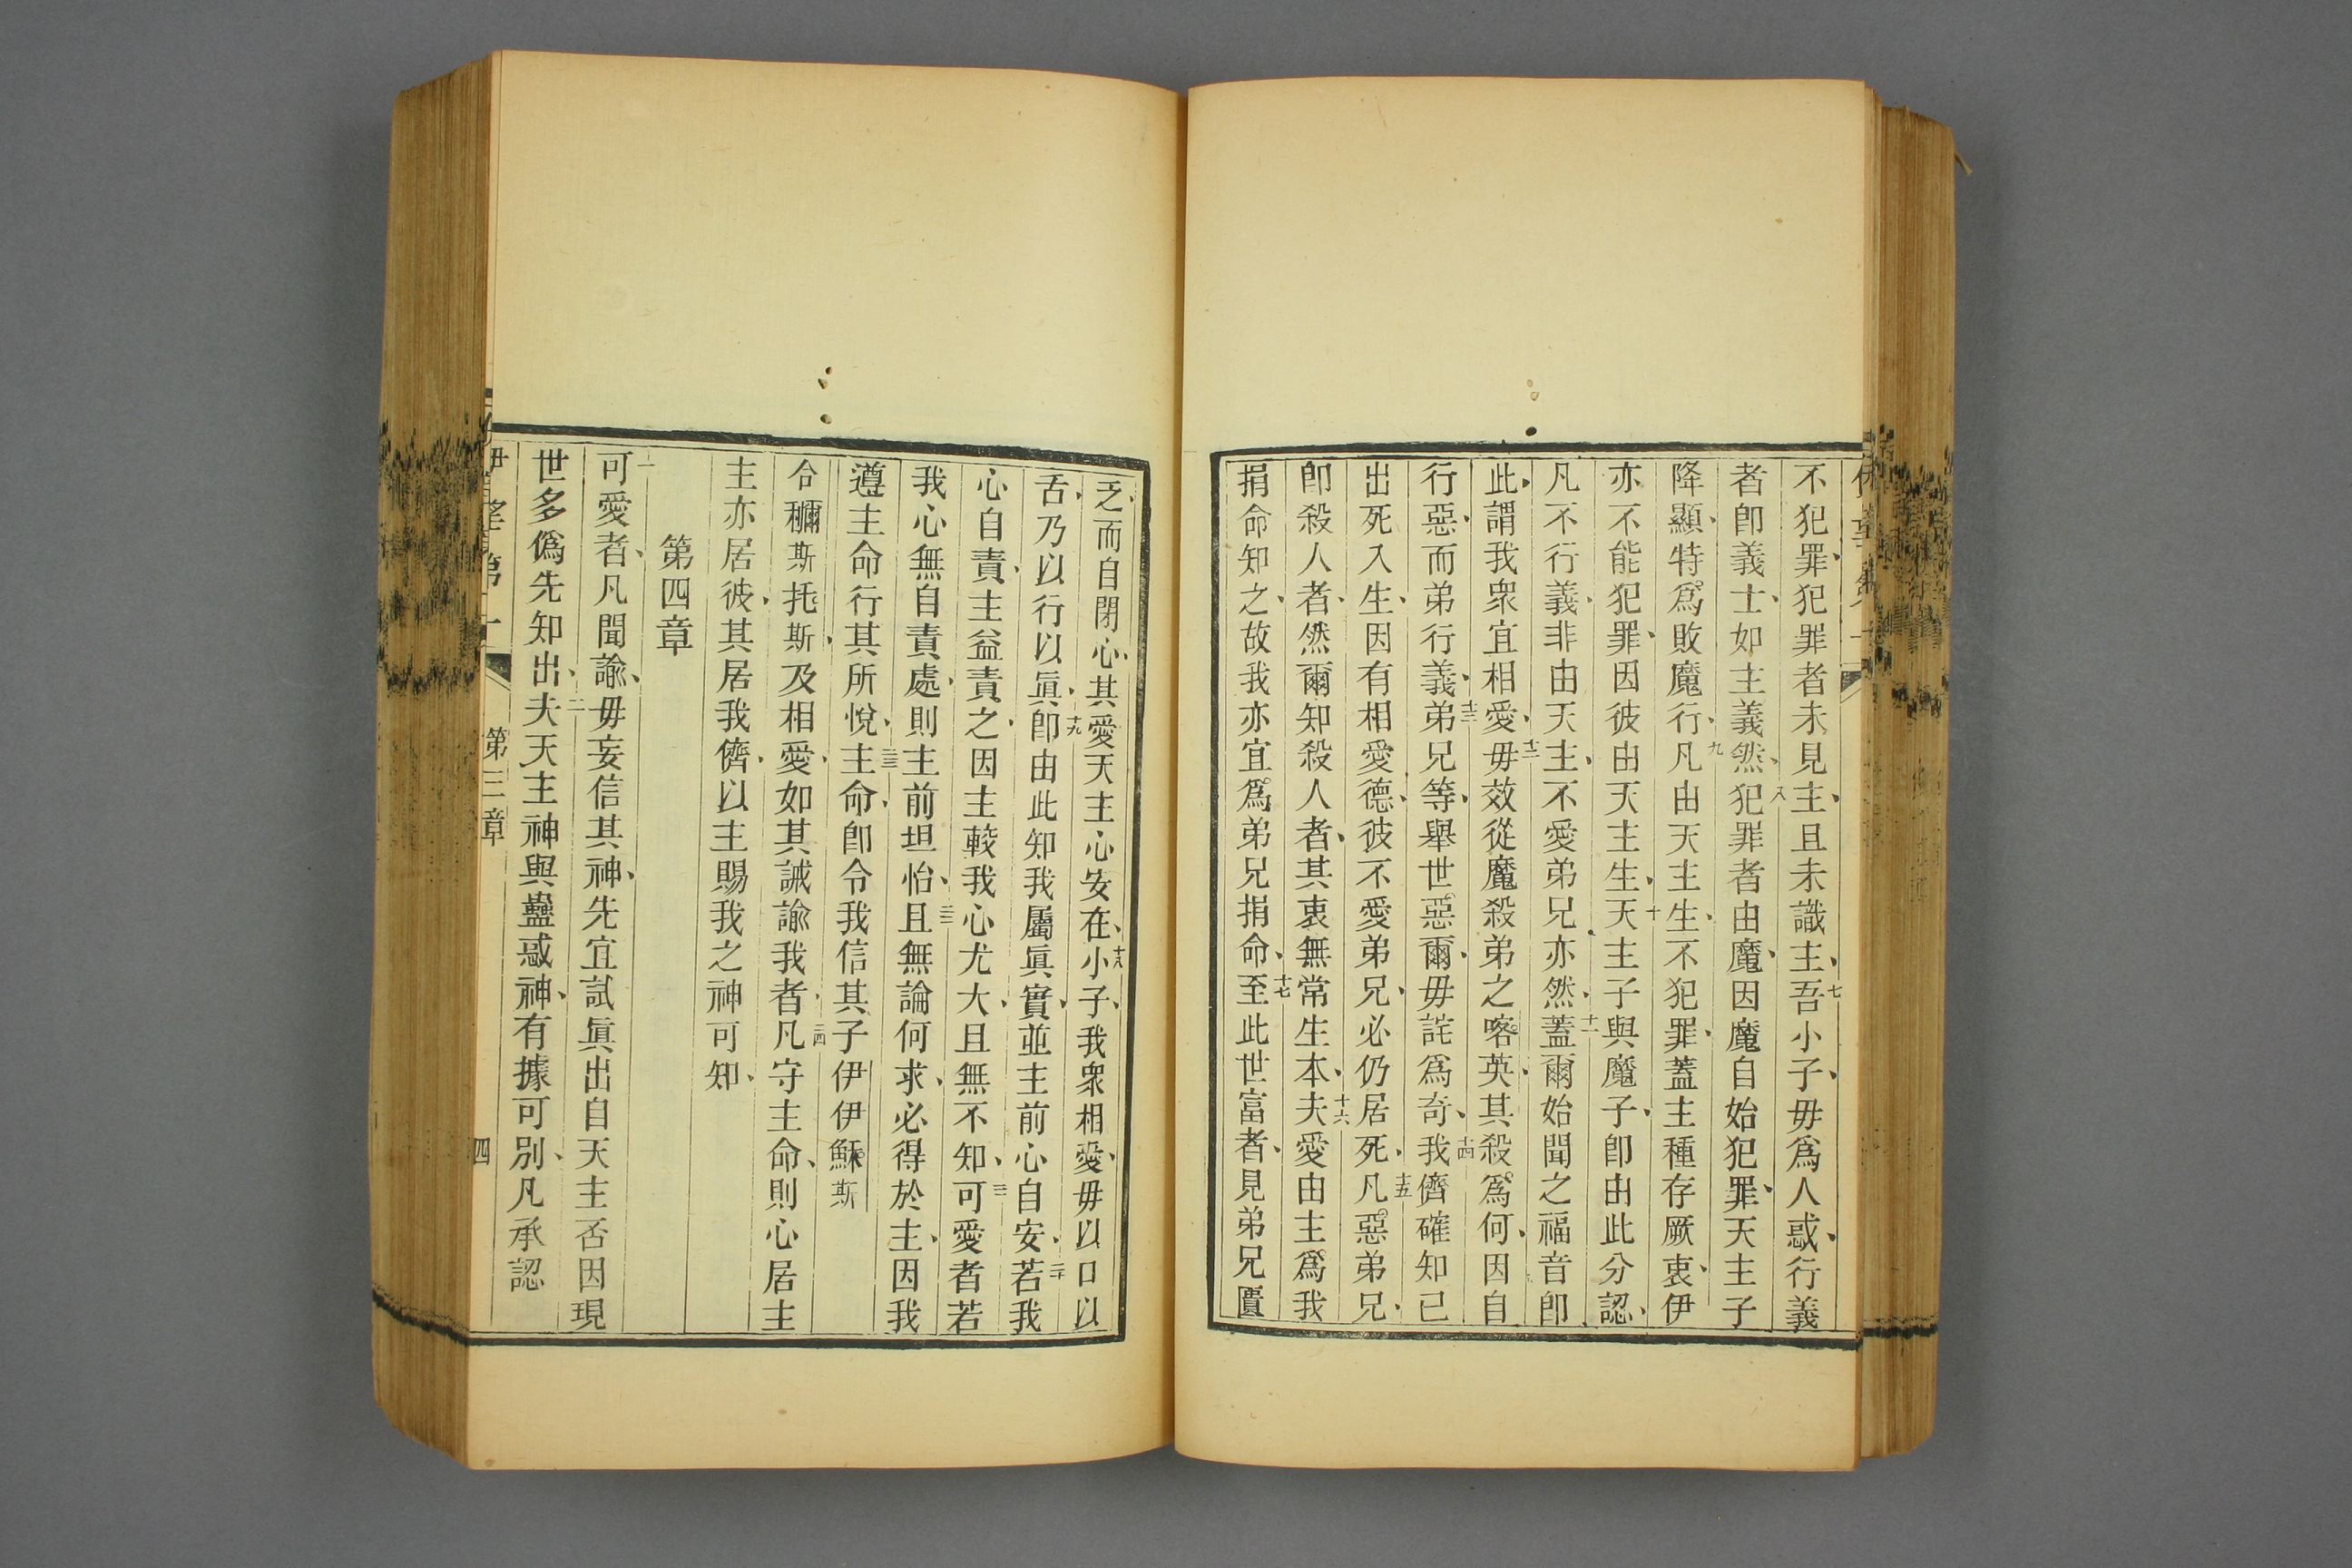 不犯罪、犯罪者未見主、且未識主、七吾小子、毋爲人惑、行義
者卽義士、如主義然、八犯罪者由魔、因魔自始犯罪、天主子
降顯、特爲敗魔行、九凡由天主生、不犯罪、蓋主種存厥衷、伊
亦不能犯罪、因彼由天主生、十天主子與魔子、卽由此分認、
凡不行義、非由天主、不愛弟兄亦然、十一蓋爾始聞之福音卽
此、謂我衆宜相愛、十二毋效從魔殺弟之喀英、其殺爲何、因自
行惡、而弟行義、十三弟兄等、舉世惡爾、毋詫爲奇、十四我儕確知已
出死入生、因有相愛德、彼不愛弟兄、必仍居死、十五凡惡弟兄、
卽殺人者、然爾知殺人者、其衷無常生本、十六夫愛由主爲我
捐命知之、故我亦宜爲弟兄捐命、十七至此世富者、見弟兄匱
乏、而自閉心、其愛天主心安在、十八小子、我衆相愛、毋以口以
舌、乃以行以眞、十九卽由此知我屬眞實、並主前心自安、二十若我
心自責、主益責之、因主較我心尤大、且無不知、二一可愛者若
我心無自責處、則主前坦怡、二二且無論何求、必得於主、因我
遵主命行其所悅、二三主命、卽令我信其子伊伊穌斯
合穪斯托斯、及相愛、如其誡諭我者、二四凡守主命、則心居主、
主亦居彼、其居我儕、以主賜我之神可知、
第四章
一可愛者、凡聞諭、毋妄信其神、先宜試眞出自天主否、因現
世多僞先知出、二夫天主神與蠱惑神、有據可別、凡承認
第三章
四